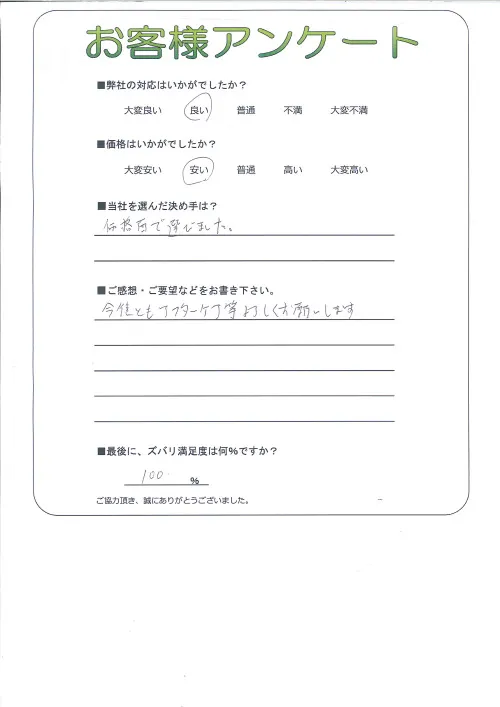 お客様アンケート
■弊社の対応はいかがでしたか？
大変良い 良い 普通 不満 大変不満
■価格はいかがでしたか？
大変安い 安い 普通 高い 大変高い
■当社を選んだ決め手は？
価格面で選びました。
■ご感想・ご要望などをお書き下さい。
今後ともアフターケア等よろしくお願いします
■最後に、ズバリ満足度は何％ですか？
100 ％
ご協力頂き、誠にありがとうございました。